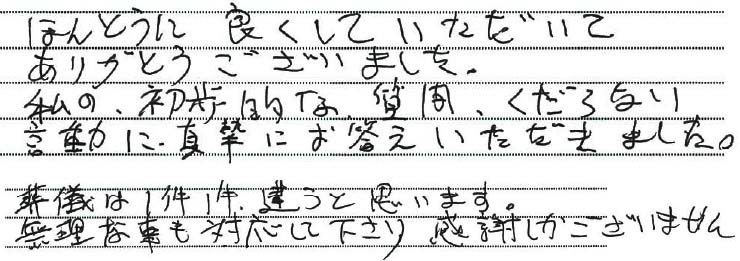 ほんとうに 良くしていただいて
ありがとうございました。
私の、初歩的な、質問、くだらない
言動に、真摯にお答えいただきました。
葬儀は1件1件、違うと思います。
無理な事も対応して下さり 感謝しかございません